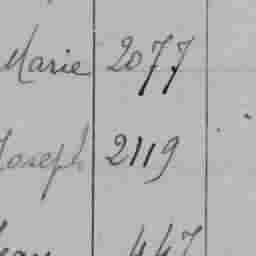 Marie 2077
Joseph 2119
447